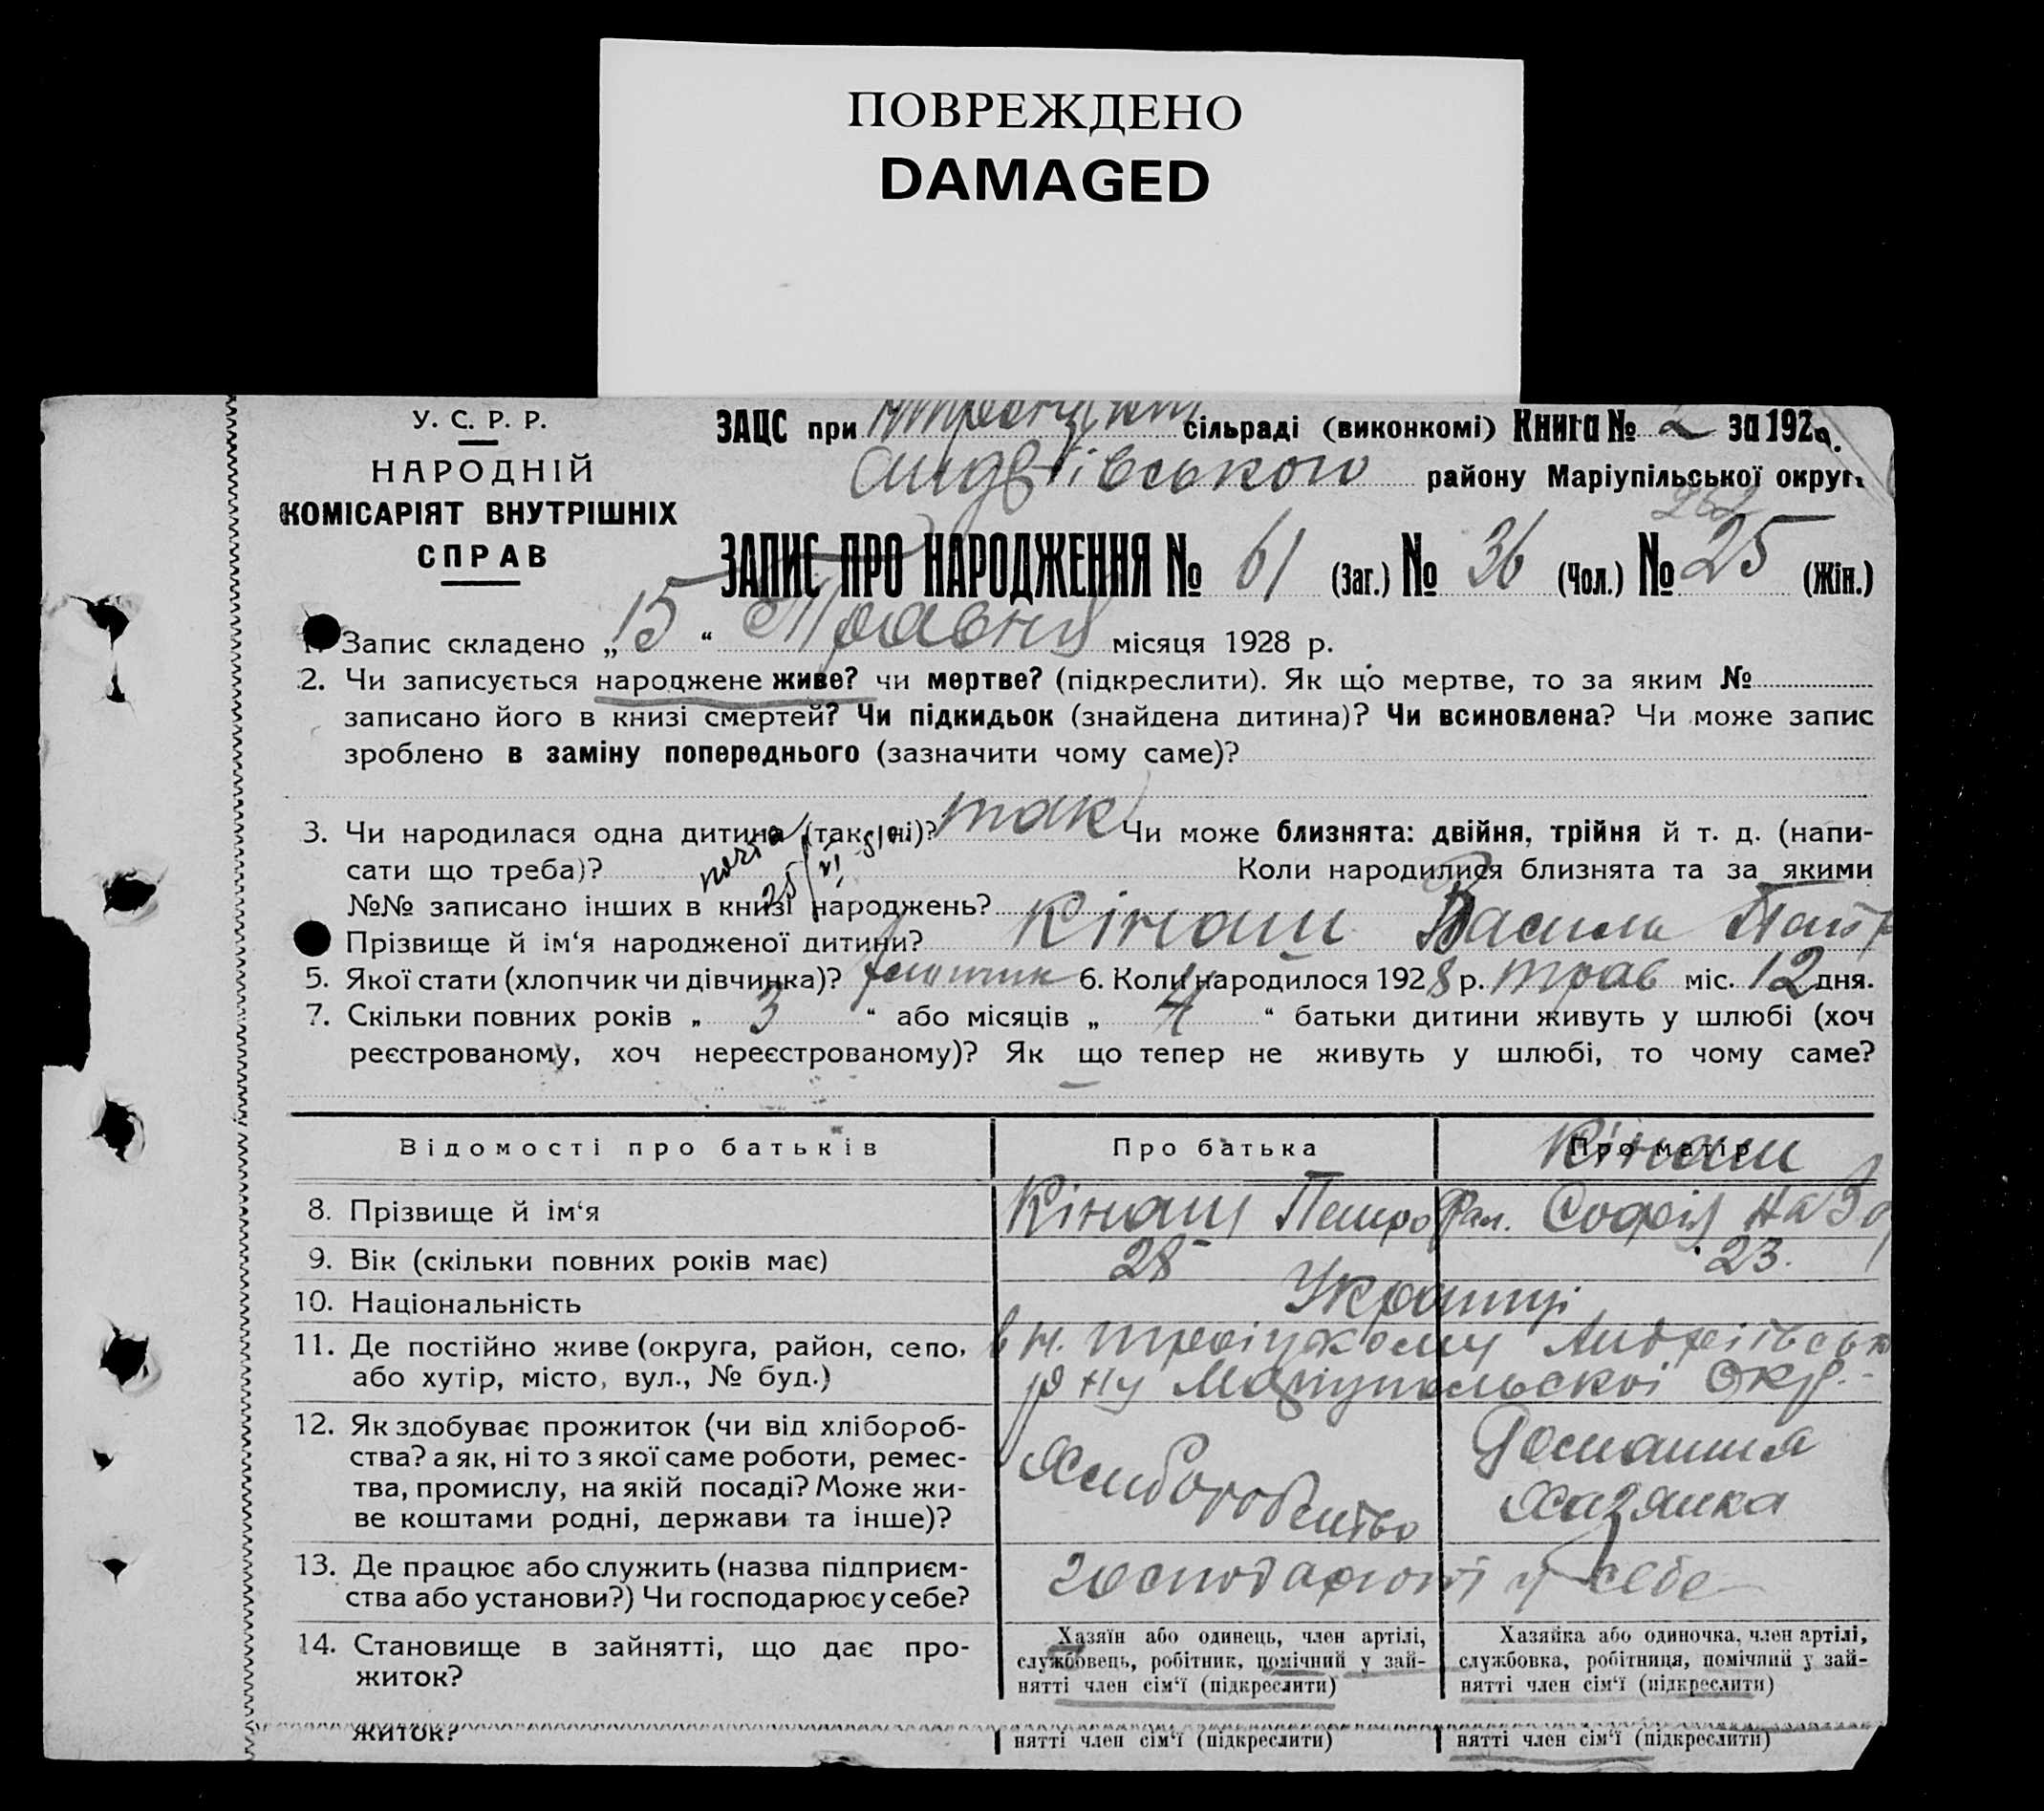 ПОВРЕЖДЕНО
DAMAGED
У. С. Р. Р.
НАРОДНІЙ
КОМІСАРІЯТ ВНУТРІШНІХ
СПРАВ
ЗАЦС при сільраді (виконкомі) Книга № 2 за 192
району Маріупільської округ
ЗАПИС ПРО НАРОДЖЕННЯ № 61 (Заг.) № 36 (Чол.) № 25 (Жін.)
Запис складено „ 15 “ Травня місяця 1928 р.
2. Чи записується народжене живе? чи мертве? (підкреслити). Як що мертве, то за яким №
записано його в книзі смертей? Чи підкидьок (знайдена дитина)? Чи всиновлена? Чи може запис
зроблено в заміну попереднього (зазначити чому саме)?
3. Чи народилася одна дитина (так, ні)? так Чи може близнята: двійня, трійня й т. д. (напи-
сати що треба)? Коли народилися близнята та за якими
№№ записано інших в книзі народжень?
Прізвище й ім‘я народженої дитини? Кінаш Василь
5. Якої стати (хлопчик чи дівчинка)? 6. Коли народилося 1928 р. трав міс. 12 дня.
7. Скільки повних років „ 3 “ або місяців „ 4 “ батьки дитини живуть у шлюбі (хоч
реєстрованому, хоч нереєстрованому)? Як що тепер не живуть у шлюбі, то чому саме?
Відомості про батьків Про батька Про матір
Кінаш
8. Прізвище й ім‘я Кінаш Петро Софія
9. Вік (скільки повних років має) 28 23.
10. Національність Українці
11. Де постійно живе (округа, район, село,
або хутір, місто, вул., № буд.)
р ну Маріупольскої Окр.
12. Як здобуває прожиток (чи від хлібороб-
ства? а як, ні то з якої саме роботи, ремес-
тва, промислу, на якій посаді? Може жи-
ве коштами родні, держави та інше)?
Хлиборобство
Домашня
Хазяика
13. Де працює або служить (назва підприєм-
ства або установи?) Чи господарює у себе?
у себе
14. Становище в зайнятті, що дає про-
житок?
Хазяїн або одинець, член артілі,
службовець, робітник, помічний у зай-
нятті член сім‘ї (підкреслити)
Хазяйка або одиночка, член артілі,
службовка, робітниця, помічний у зай-
нятті член сім‘ї (підкреслити)
житок?
нятті член сім‘ї (підкреслити)
нятті член сім‘ї (підкреслити)